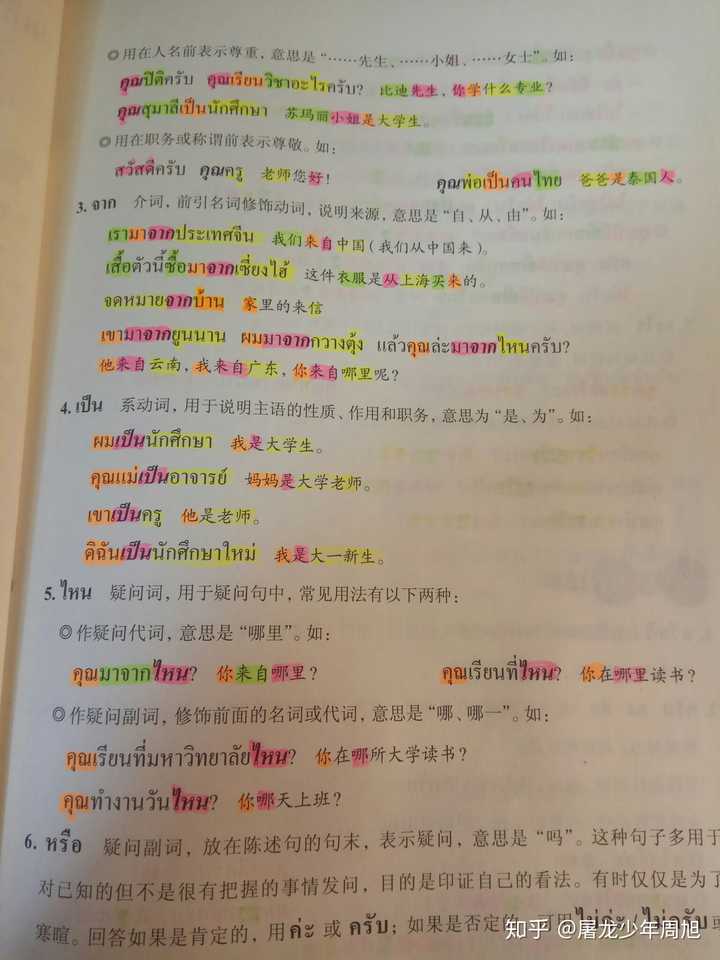 ◎用在人名前表示尊重，意思是“……先生、……小姐、……女士”。如：
คุณปิติครับ คุณเรียนวิชาอะไรครับ? 比迪先生，你学什么专业？
คุณสุมาลีเป็นนักศึกษา 苏玛丽小姐是大学生。
◎用在职务或称谓前表示尊敬。如：
สวัสดีครับ คุณครู 老师您好！ คุณพ่อเป็นคนไทย 爸爸是泰国人。
3. จาก 介词，前引名词修饰动词，说明来源，意思是“自、从、由”。如：
เรามาจากประเทศจีน 我们来自中国（我们从中国来）。
เสื้อตัวนี้ซื้อมาจากเซี่ยงไฮ้ 这件衣服是从上海买来的。
จดหมายจากบ้าน 家里的来信
เขามาจากยูนนาน ผมมาจากกวางตุ้ง แล้วคุณล่ะมาจากไหนครับ?
他来自云南，我来自广东，你来自哪里呢？
4. เป็น 系动词，用于说明主语的性质、作用和职务，意思为“是、为”。如：
ผมเป็นนักศึกษา 我是大学生。
คุณแม่เป็นอาจารย์ 妈妈是大学老师。
เขาเป็นครู 他是老师。
ดิฉันเป็นนักศึกษาใหม่ 我是大一新生。
5. ไหน 疑问词，用于疑问句中，常见用法有以下两种：
◎作疑问代词，意思是“哪里”。如：
คุณมาจากไหน? 你来自哪里？ คุณเรียนที่ไหน? 你在哪里读书？
◎作疑问副词，修饰前面的名词或代词，意思是“哪、哪一”。如：
คุณเรียนที่มหาวิทยาลัยไหน? 你在哪所大学读书？
คุณทำงานวันไหน? 你哪天上班？
6. หรือ 疑问副词，放在陈述句的句末，表示疑问，意思是“吗”。这种句子多用于
对已知的但不是很有把握的事情发问，目的是印证自己的看法。有时仅仅是为了
寒暄。回答如果是肯定的，用 ค่ะ 或 ครับ；如果是否定的，可用 ไม่ค่ะ / ไม่ครับ 或
知乎 @屠龙少年周旭